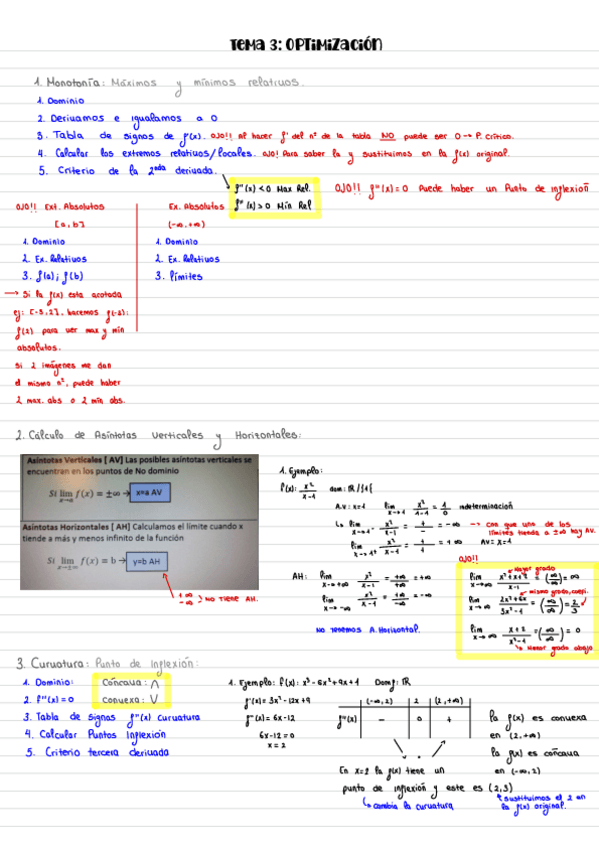 TEMA 3: OPTIMIZACIÓN
1. Monotonía: Máximos y mínimos relativos.
1. Dominio
2. Derivamos e igualamos a 0
3. Tabla de signos de f'(x). OJO!! Al hacer f' del nº de la tabla NO puede ser 0 → P. Crítico.
4. Calcular los extremos relativos/locales. OJO! Para saber la y sustituimos en la f(x) original.
5. Criterio de la 2nda derivada.
f''(x) < 0 Max Rel.
f''(x) > 0 Min Rel
OJO!! f''(x) = 0 Puede haber un Punto de inflexión
OJO!! Ext. Absolutos
[a, b]
1. Dominio
2. Ex. Relativos
3. f(a); f(b)
→ Si la f(x) esta acotada
ej: [-3,2], hacemos f(-3);
f(2) para ver max y min
absolutos.
Si 2 imágenes me dan
el mismo nº, puede haber
2 max. abs o 2 min abs.
Ex. Absolutos
(-∞, +∞)
1. Dominio
2. Ex. Relativos
3. límites
2. Cálculo de Asíntotas Verticales y Horizontales:
Asíntotas Verticales [ AV] Las posibles asíntotas verticales se
encuentran en los puntos de No dominio
Si lim x→a f(x) = ±∞ → x=a AV
Asíntotas Horizontales [ AH] Calculamos el límite cuando x
tiende a más y menos infinito de la función
Si lim x→±∞ f(x) = b → y=b AH
+∞
-∞ > NO TIENE AH.
1. Ejemplo:
f(x): x²/x-1 dom: ℝ/{1}
A.V: x=1 lim x→1 x²/x-1 = 1/0 indeterminación
lim x→1⁻ x²/x-1 = 1/- = -∞ → con que uno de los
límites tienda a ±∞ hay AV.
lim x→1⁺ x²/x-1 = 1/+ = +∞ AV: x=1
AH: lim x→+∞ x²/x-1 = +∞/+∞ = +∞
lim x→-∞ x²/x-1 = +∞/-∞ = -∞
No tenemos A. Horizontal.
OJO!!
Mayor grado
mismo grado, coefi.
Menor grado abajo
3. Curvatura: Punto de Inflexión:
1. Dominio:
2. f''(x) = 0
3. Tabla de signos f''(x) Curvatura
4. Calcular Puntos Inflexión
5. Criterio tercera derivada
Cóncava: ∩
Convexa: ∪
1. Ejemplo: f(x): x³ - 6x² + 9x + 1 Domf: ℝ
f'(x) = 3x² - 12x + 9
f''(x) = 6x - 12
6x - 12 = 0
x = 2
(-∞, 2) 2 (2, +∞)
f''(x) - 0 +
En x=2 la f(x) tiene un
punto de inflexión y este es (2,3)
cambia la curvatura
la f(x) es convexa
en (2, +∞)
la f(x) es cóncava
en (-∞, 2)
sustituimos el 2 en
la f(x) original.